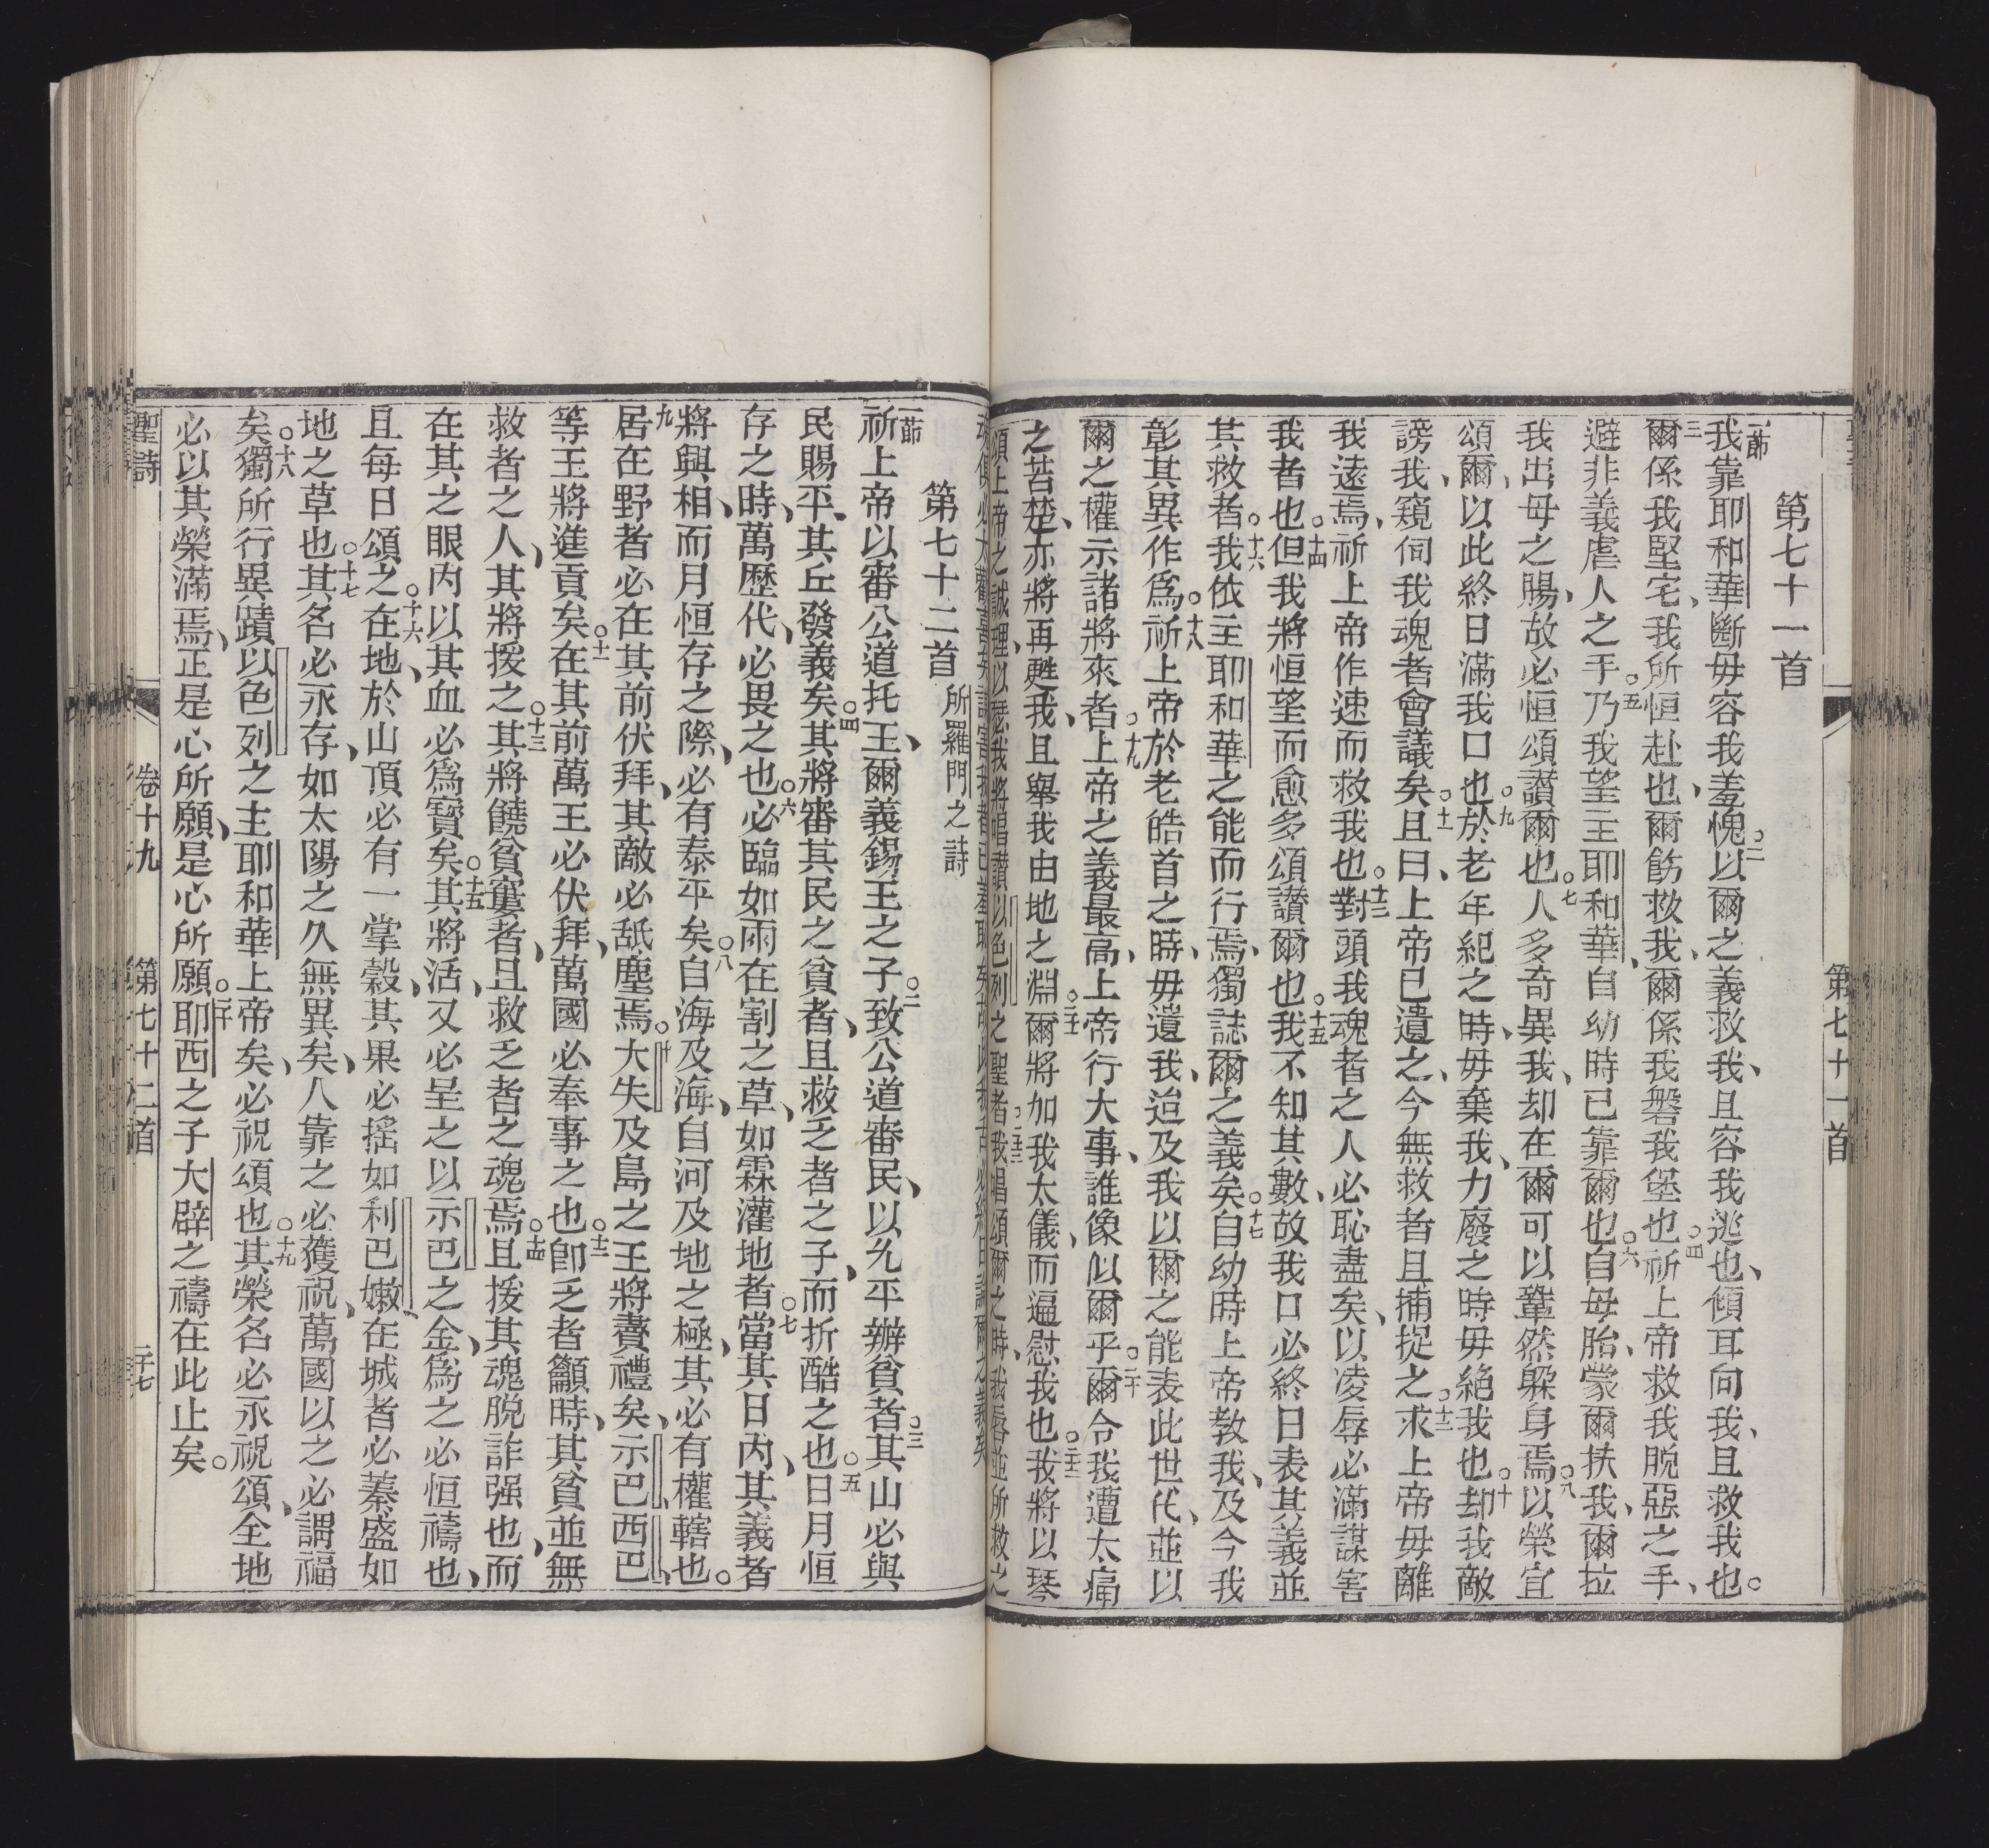 第七十一首
一節我靠耶和華斷毋容我羞愧。二以爾之義救我、且容我逃也、傾耳向我、且救我也。
三爾係我堅宅、我所恒赴也、爾飭救我、爾係我磐我堡也。四祈上帝救我脫惡之手、
避非義虐人之手。五乃我望主耶和華、自幼時已靠爾也。六自毋胎、蒙爾扶我、爾拉
我出母之腸、故必恒頌讃爾也。七人多奇異我、却在爾可以鞏然躲身焉。八以榮宜
頌爾、以此終日滿我口也。九於老年紀之時、毋棄我、力廢之時毋絕我也。十却我敵
謗我、窺伺我魂者會議矣。十一且曰、上帝已遺之、今無救者且捕捉之。十二求上帝毋離
我遠焉、祈上帝作速而救我也。十三對頭我魂者之人必恥盡矣、以凌辱必滿謀害
我者也。十四但我將恒望而愈多頌讃爾也。十五我不知其數、故我口必終日表其義並
其救者。十六我依主耶和華之能而行焉、獨誌爾之義矣。十七自幼時上帝教我、及今我
彰其異作爲。十八祈上帝於老皓首之時、毋遺我、迨及我以爾之能表此世代、並以
爾之權示諸將來者。十九上帝之義最高、上帝行大事、誰像似爾乎。二十爾令我遭太痛
之苦楚、亦將再甦我、且舉我由地之淵。二十一爾將加我太儀、而逼慰我也。二十二我將以琴
頌上帝之誠理、以瑟我將唱讃以色列之聖者。二十三我唱頌爾之時、我唇並所救之
第七十二首 所羅門之詩
一節祈上帝以審公道托王、爾義錫王之子。二致公道審民、以允平辦貧者。三其山必與
民賜平、其丘發義矣。四其將審其民之貧者、且救乏者之子、而折酷之也。五日月恒
存之時、萬歷代、必畏之也。六必臨如雨在割之草、如霖灌地者。七當其日內、其義者
將興、相而月恒存之際、必有泰平矣。八自海及海、自河及地之極、其必有權轄也。
九居在野者必在其前伏拜、其敵必舐塵焉。十大失及島之王將賷禮矣、示巴西巴
等王將進貢矣。十一在其前萬王必伏拜、萬國必奉事之也。十二卽乏者籲時、其貧並無
救者之人、其將援之。十三其將饒貧窶者、且救乏者之魂焉。十四且援其魂脫詐强也、而
在其之眼內以其血必爲寶矣。十五其將活、又必呈之以示巴之金、爲之必恒禱也、
且每日頌之。十六在地、於山頂必有一掌穀、其果必搖如利巴嫩、在城者必蓁盛如
地之草也。十七其名必永存、如太陽之久無異矣、人靠之必獲祝、萬國以之必謂福
矣。十八獨所行異蹟以色列之主耶和華上帝矣、必祝頌也。十九其榮名必永祝頌、全地
必以其榮滿焉、正是心所願、是心所願。二十耶西之子大辟之禱在此止矣。
聖詩 卷十九 第七十二首 二十七
第七十一首